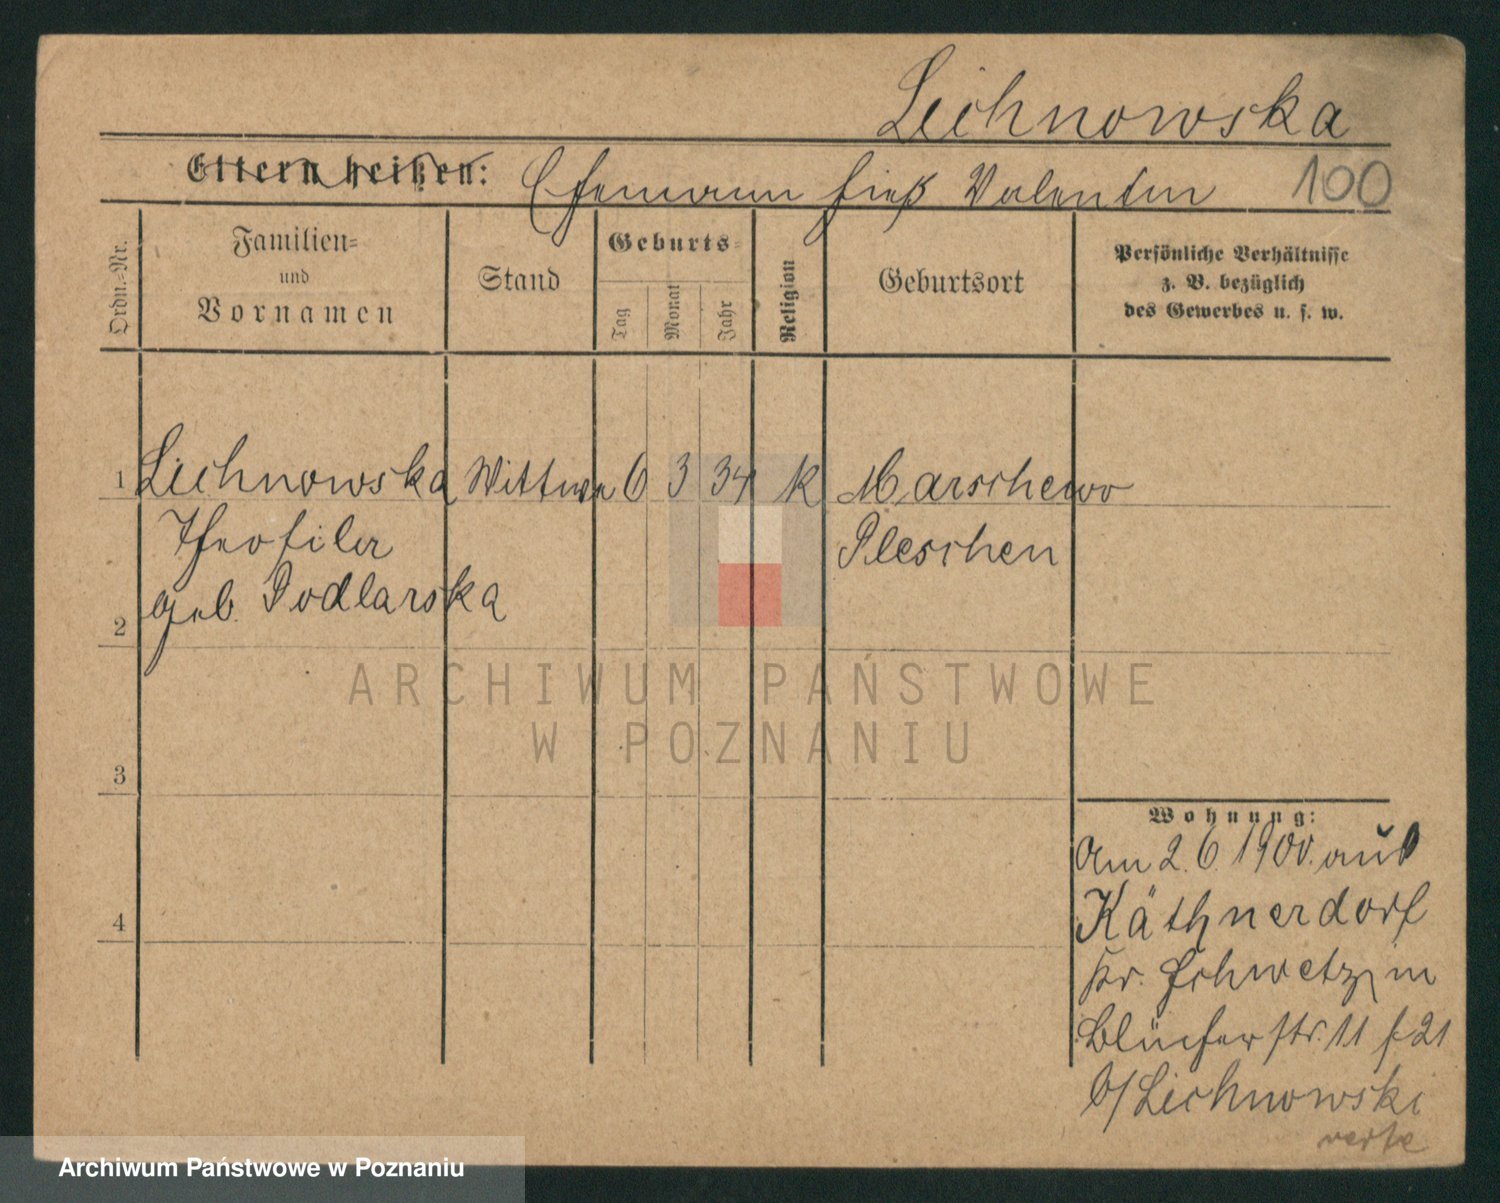 Lichnowska
Eltern heißen: Ehemann hieß Valentin 100
Ordn.-Nr.
Familien- und Vornamen
Stand
Geburts-
Tag
Monat
Jahr
Religion
Geburtsort
Persönliche Verhältnisse
z. B. bezüglich
des Gewerbes u. s. w.
1 Lichnowska Wittwe 6 3 34 k Marschewo
Theofila Pleschen
geb. Podlarska
2
ARCHIWUM PAŃSTWOWE
W POZNANIU
3
4
Wohnung:
Am 2.6.1900. aus
Käthnerdorf
Kr. Schwetz in
Blücherstr. 11
b/Lichnowski
Archiwum Państwowe w Poznaniu